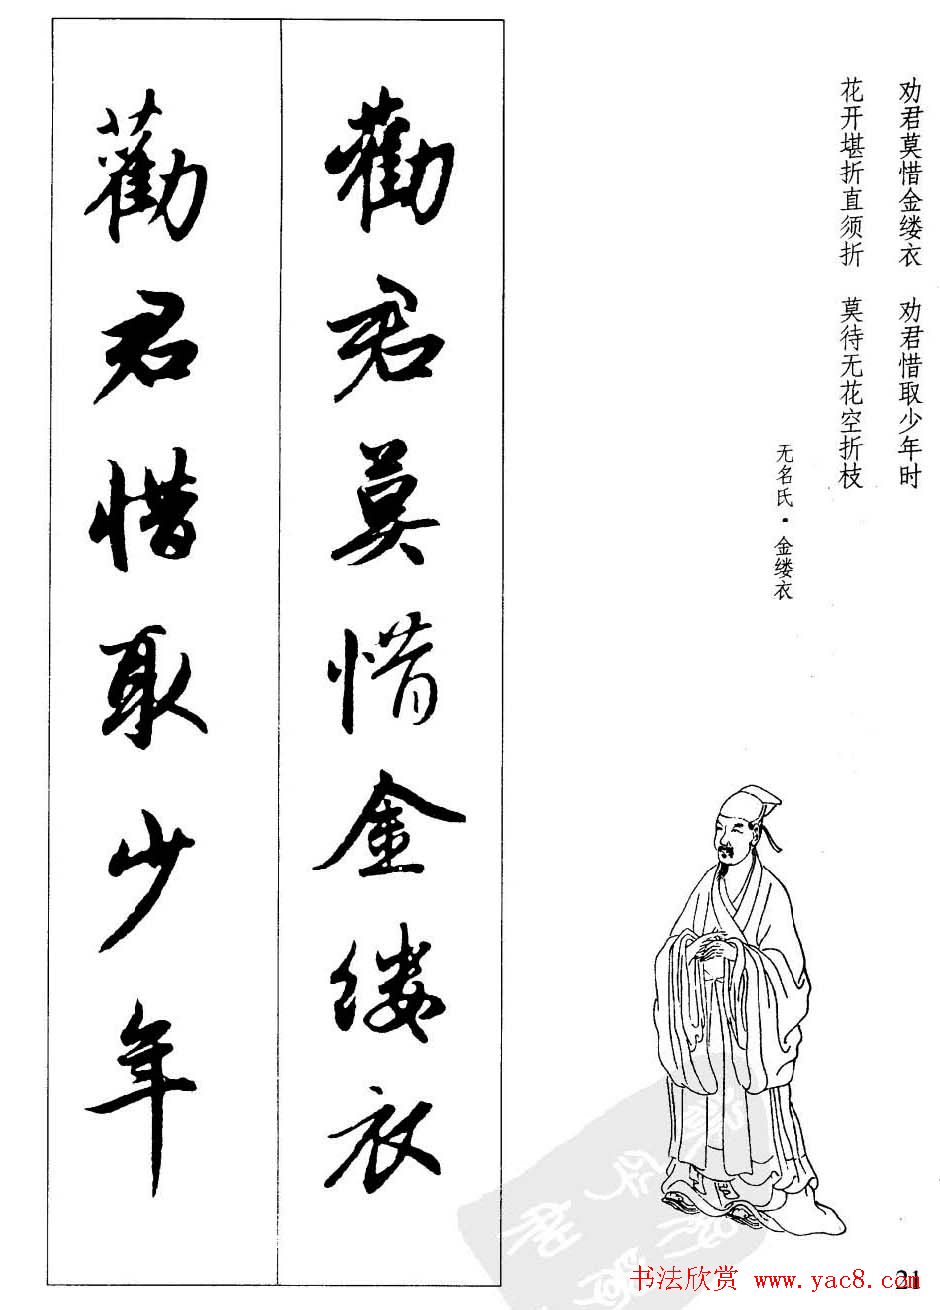 劝君莫惜金缕衣　劝君惜取少年时
花开堪折直须折　莫待无花空折枝
无名氏·金缕衣
勸君莫惜金缕衣
勸君惜取少年
书法欣赏 www.yac8.com
21